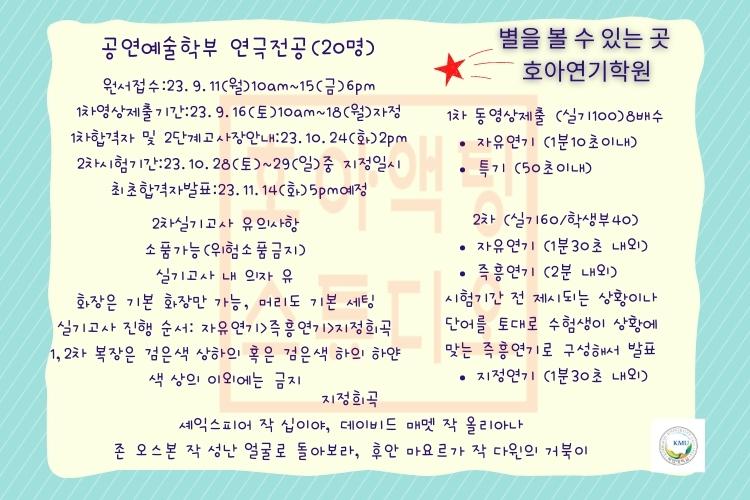 공연예술학부 연극전공(20명)
원서접수:23.9.11(월)10am~15(금)6pm
1차영상제출기간:23.9.16(토)10am~18(월)자정
1차합격자 및 2단계고사장안내:23.10.24(화)2pm
2차시험기간:23.10.28(토)~29(일)중 지정일시
최초합격자발표:23.11.14(화)5pm예정
2차실기고사 유의사항
소품가능(위험소품금지)
실기고사 내 의자 유
화장은 기본 화장만 가능, 머리도 기본 세팅
실기고사 진행 순서: 자유연기>즉흥연기>지정희곡
1,2차 복장은 검은색 상하의 혹은 검은색 하의 하얀
색 상의 이외에는 금지
별을 볼 수 있는 곳
호아연기학원
1차 동영상제출 (실기100)8배수
• 자유연기 (1분10초이내)
• 특기 (50초이내)
2차 (실기60/학생부40)
• 자유연기 (1분30초 내외)
• 즉흥연기 (2분 내외)
시험기간 전 제시되는 상황이나
단어를 토대로 수험생이 상황에
맞는 즉흥연기로 구성해서 발표
• 지정연기 (1분30초 내외)
지정희곡
셰익스피어 작 십이야, 데이비드 매멧 작 올리아나
존 오스본 작 성난 얼굴로 돌아보라, 후안 마요르가 작 다윈의 거북이
호아액팅
스튜디오
KMU